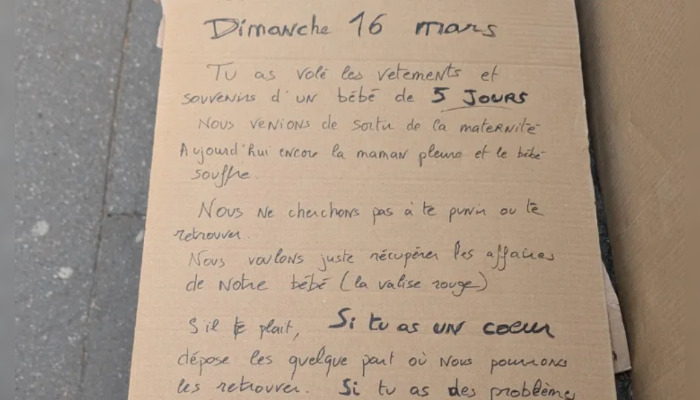 Dimanche 16 mars
Tu as volé les vetements et
souvenirs d'un bébé de 5 JOURS
Nous venions de sortir de la maternité
Aujourd'hui encore la maman pleure et le bébé
souffre.
Nous ne cherchons pas à te punir ou te
retrouver.
Nous voulons juste récupérer les affaires
de notre bébé (la valise rouge)
S'il te plait, Si tu as un coeur
dépose les quelque part où nous pourrons
les retrouver. Si tu as des problèmes